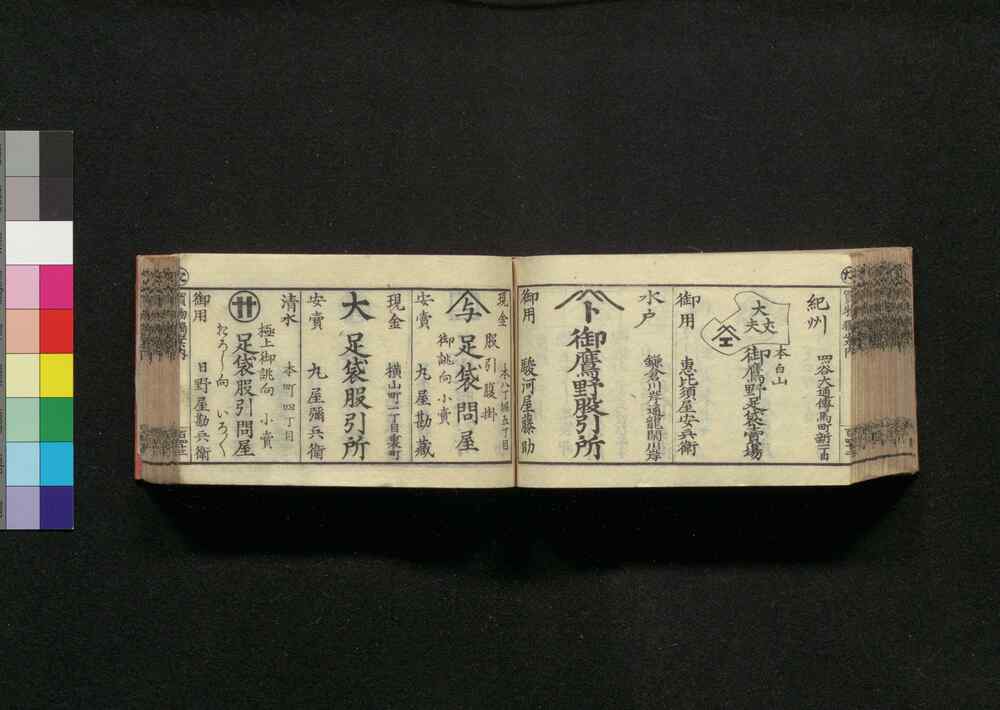 紀州
四谷大通傳馬町新一丁目
大丈夫
本白山
御鷹野足袋賣場
御用
恵比須屋安兵衛
水戸
鎌倉川岸通龍閑川岸
卜
御鷹野股引所
御用
駿河屋藤助
現金
本八丁堀五丁目
股引腹掛
与
足袋問屋
御誂向小賣
安賣
丸屋勘藏
現金
横山町一丁目裏町
大
足袋股引所
安賣
丸屋彌兵衛
清水
本町四丁目
極上御誂向
小賣
足袋股引問屋
おろし向
いろ〱
御用
日野屋勘兵衛